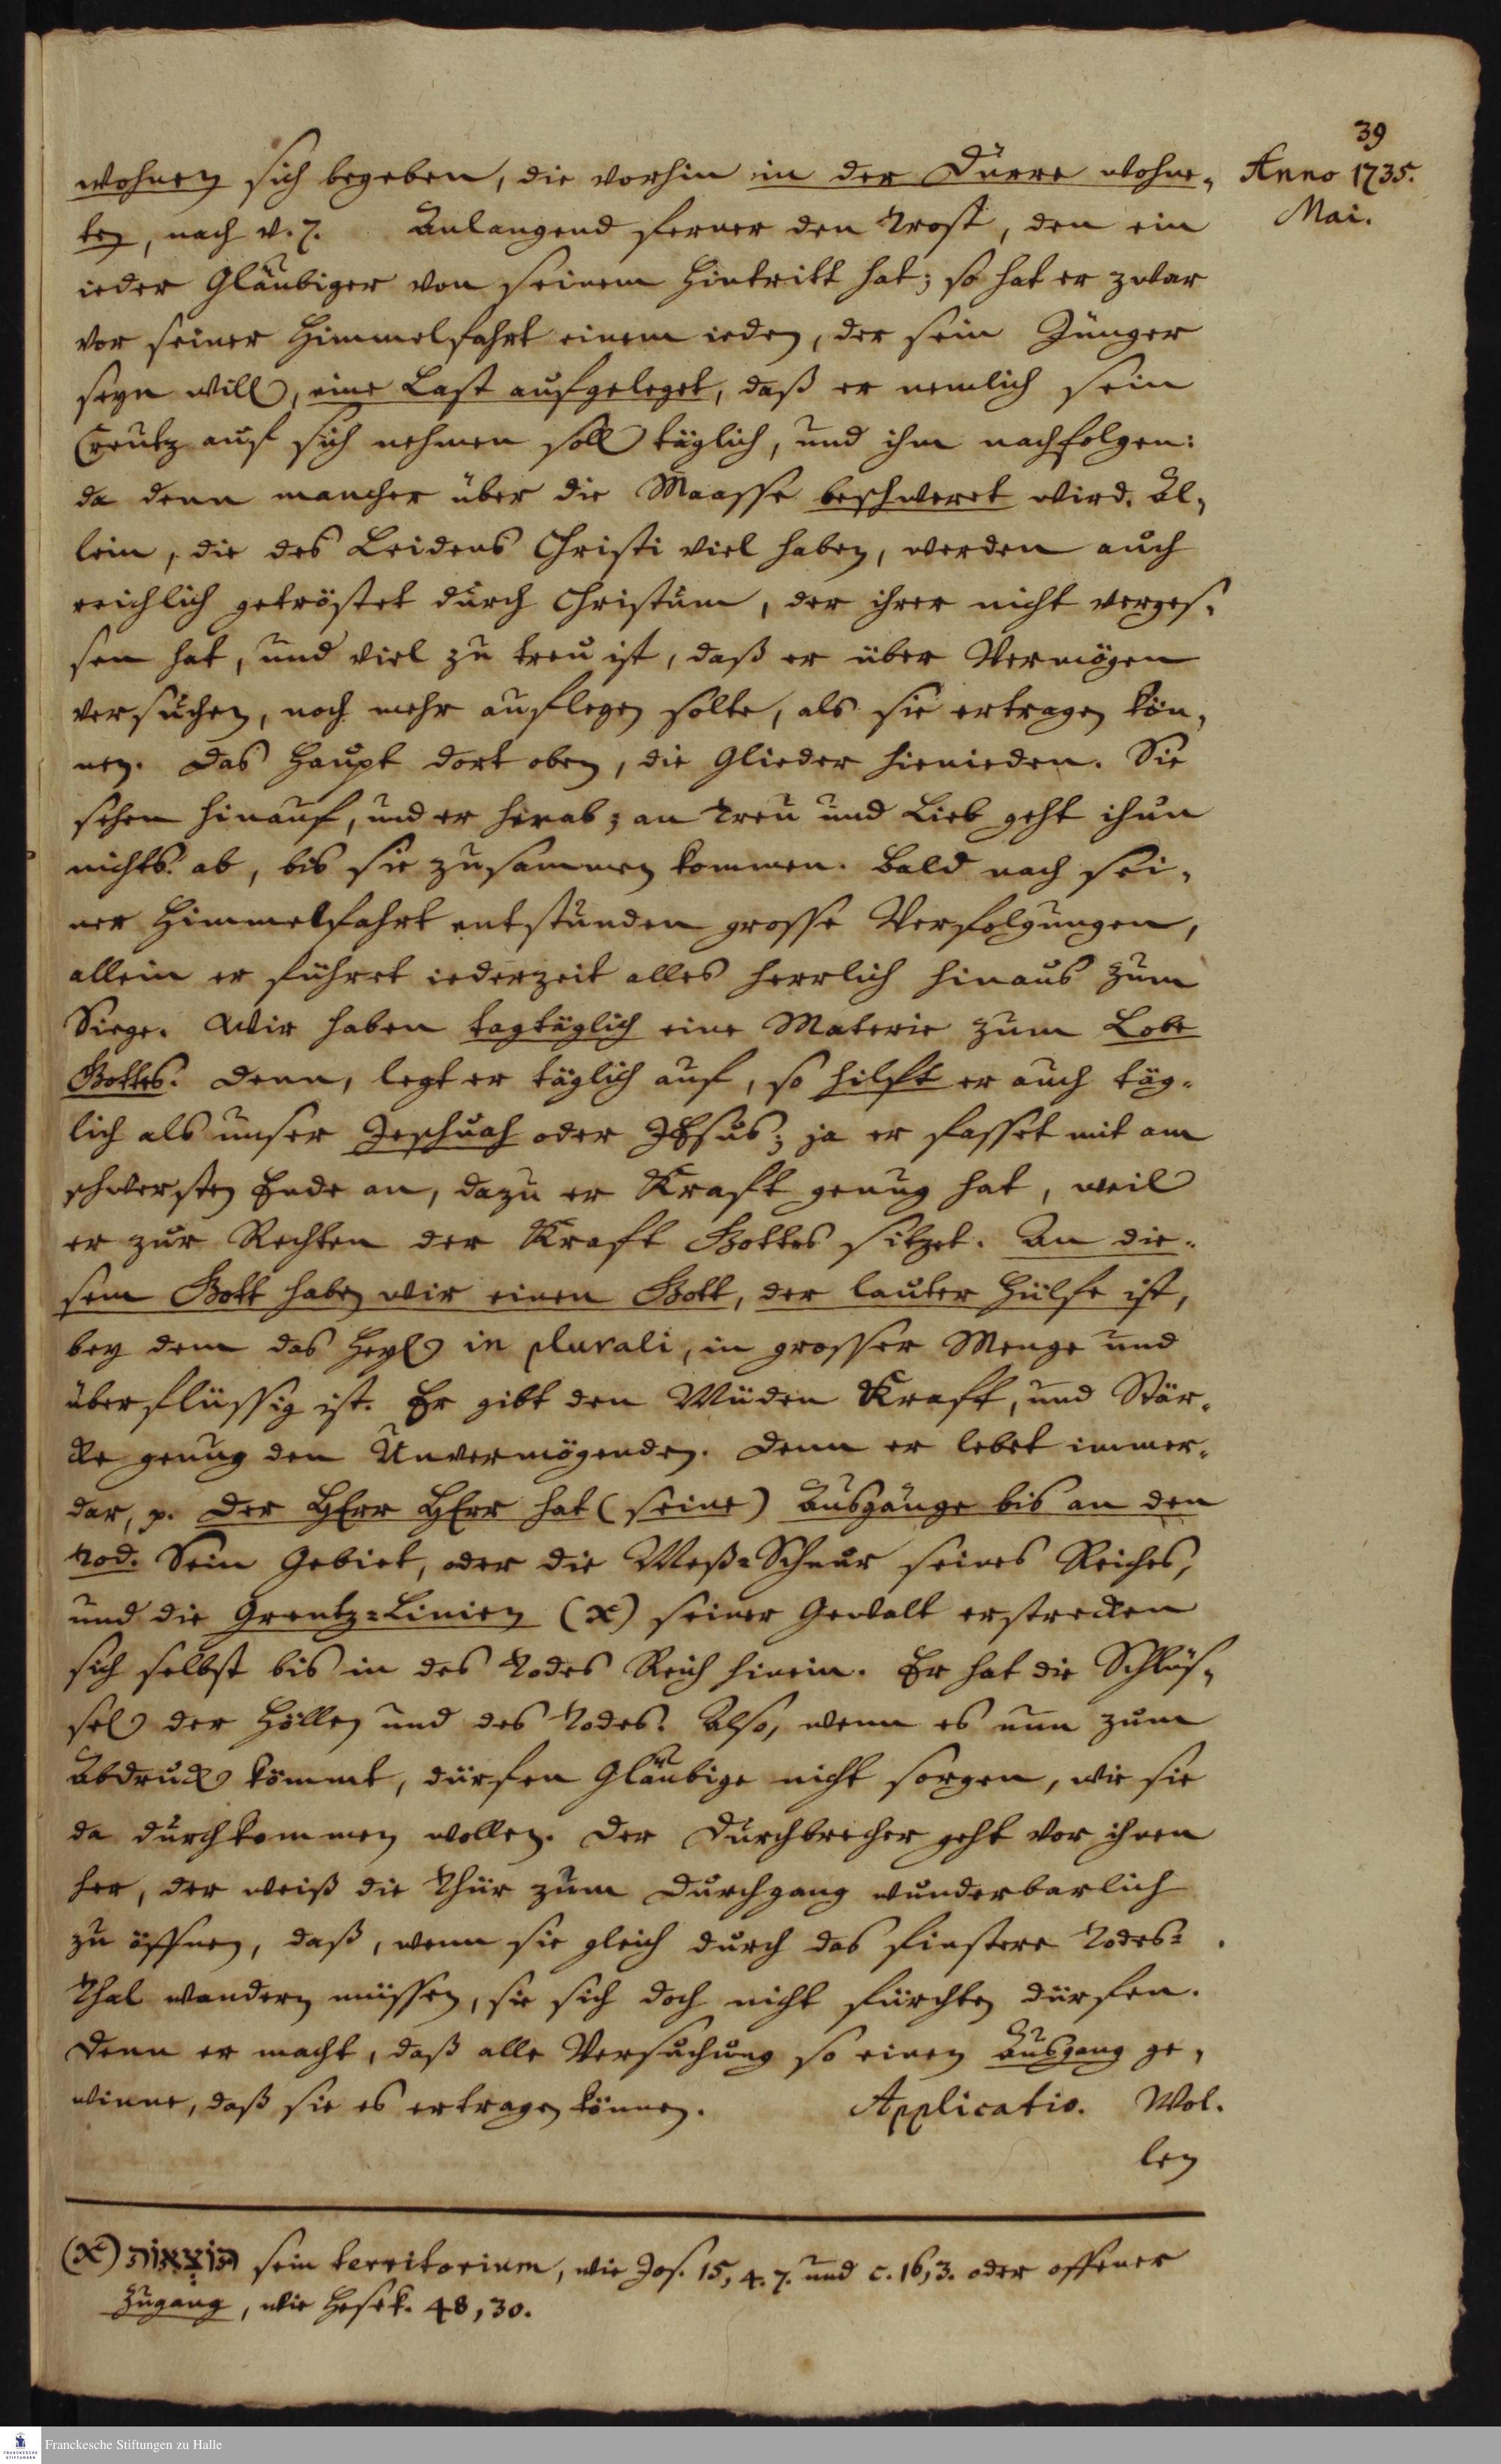 39
wohnen sich begeben, die vorhin in der Dürre wohne-
Anno 1735.
ten, nach v. 7. Anlangend ferner den Trost, den ein
Mai.
ieder Gläubiger von seinem Hintritt hat; so hat er zwar
vor seiner Himmelfahrt einem ieden, der sein Jünger
seyn will, eine Last aufgeleget, daß er nemlich sein
Creutz auf sich nehmen soll täglich, und ihm nachfolgen:
da denn mancher über die Maasse beschweret wird. Al-
lein, die des Leidens Christi viel haben, werden auch
reichlich getröstet durch Christum, der ihrer nicht verges-
sen hat, und viel zu treu ist, daß er über Vermögen
versuchen, noch mehr auflegen solte, als sie ertragen kön-
nen. Das Haupt dort oben, die Glieder hienieden. Sie
sehen hinauf, und er herab; an Treu und Lieb geht ihnn
nichts ab, bis sie zusammen kommen. Bald nach sei-
ner Himmelfahrt entstunden grosse Verfolgungen,
allein er führet iederzeit alles herrlich hinaus zum
Siege. Wir haben tagtäglich eine Materie zum Lobe
Gottes. Denn, legt er täglich auf, so hilft er auch täg-
lich als unser Jeschuah oder JEsus; ja er fasset mit am
schwersten Ende an, dazu er Kraft genug hat, weil
er zur Rechten der Kraft Gottes sitzet. An die-
sem Gott haben wir einen Gott, der lauter Hülfe ist,
bey dem das Heyl in plurali, in grosser Menge und
überflüssig ist. Er gibt den Müden Kraft, und Stär-
cke genug den Unvermögenden. Denn er lebet immer-
dar, p. Der HErr HErr hat (seine) Ausgänge bis an den
Tod. Sein Gebiet, oder die Meß-Schnur seines Reiches,
und die Grentz-Linien (x) seiner Gewalt erstrecken
sich selbst bis in des Todes Reich hinein. Er hat die Schlüs-
sel der Höllen und des Todes. Also, wenn es nun zum
Abdruck kömmt, dürfen Gläubige nicht sorgen, wie sie
da durchkommen wollen. Der Durchbrecher geht vor ihnen
her, der weiß die Thür zum Durchgang wunderbarlich
zu öffnen, daß, wenn sie gleich durch das finstere Todes-
Thal wandern müssen, sie sich doch nicht fürchten dürfen.
Denn er macht, daß alle Versuchung so einen Ausgang ge-
winne, daß sie es ertragen können. Applicatio. Wol-
len
(x) תּוֹצָאוֹת sein territorium, wie Jos. 15, 4. 7. und c. 16, 3. oder offener
Zugang, wie Hesek. 48, 30.
Franckesche Stiftungen zu Halle